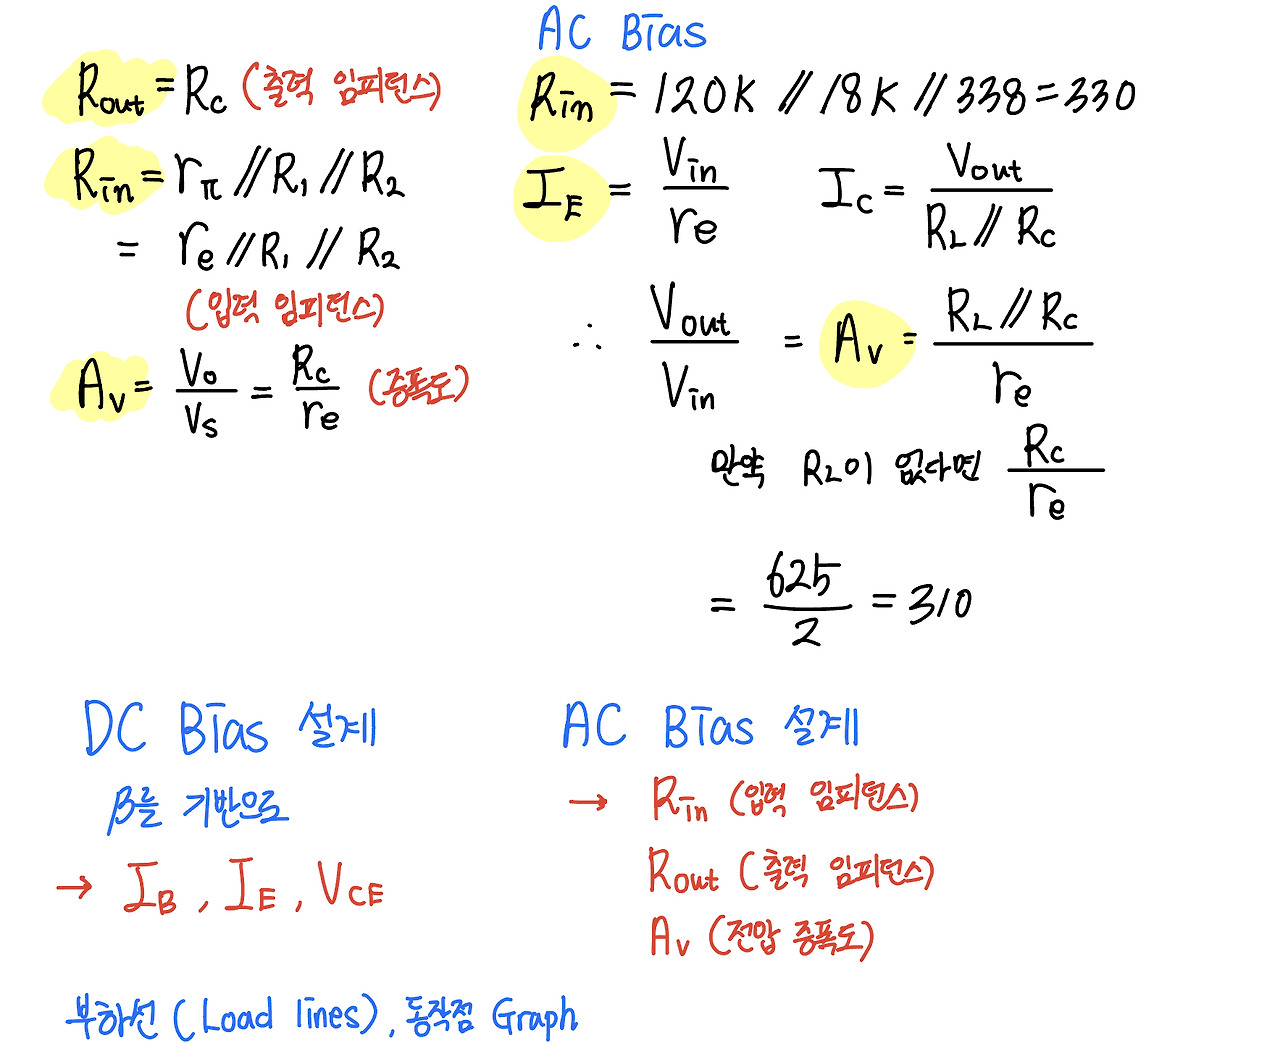 R_out = R_C (출력 임피던스)
R_in = r_π // R_1 // R_2
= r_e // R_1 // R_2
(입력 임피던스)
A_V = V_o / V_s = R_C / r_e (증폭도)
AC Bias
R_in = 120K // 18K // 338 = 330
I_E = V_in / r_e I_C = V_out / R_L // R_C
∴ V_out / V_in = A_V = R_L // R_C / r_e
만약 R_L이 없다면 R_C / r_e
= 625 / 2 = 310
DC Bias 설계
β를 기반으로
→ I_B, I_E, V_CE
AC Bias 설계
→ R_in (입력 임피던스)
R_out (출력 임피던스)
A_V (전압 증폭도)
부하선 (Load lines), 동작점 Graph